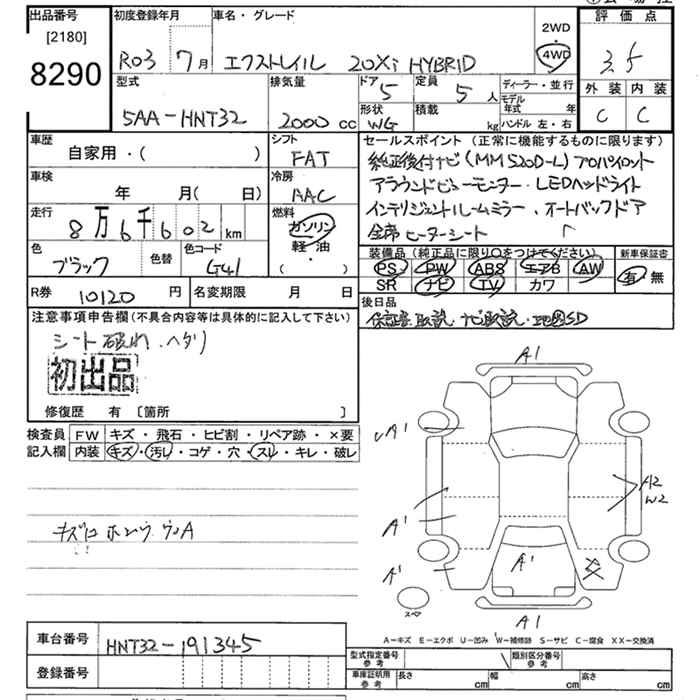 出品番号 初度登録年月 車名・グレード
[2180]
8290
R03 7月 エクストレイル 20Xi HYBRID
2WD
4WD
評価点
3.5
外装 内装
C C
型式 排気量 ドア 定員 ディーラー・並行
5AA-HNT32 2000 cc 5 5 人
モデル年式 年
形状 積載
WG kg ハンドル 左・右
車歴 シフト
自家用・( ) FAT
車検 冷房
年 月( 日) AAC
走行 燃料
8万6千602 km ガソリン
軽油・
( )
色 色替 色コード
ブラック G41
R券 10120 円 名変期限 月 日
セールスポイント(正常に機能するものに限ります)
純正後付ナビ(MM520D-L)プロパイロット
アラウンドビューモニター・LEDヘッドライト
インテリジェントルームミラー・オートバックドア
全席ヒーターシート
装備品(純正品に限り○をつけてください) 新車保証書
PS PW ABS エアB AW
SR ナビ TV カワ
有・無
後日品
保証書・取説・ナビ取説・地図SD
注意事項申告欄(不具合内容等は具体的に記入して下さい)
シート破れ・ヘタリ
初出品
修復歴 有 [箇所 ]
検査員 FW キズ・飛石・ヒビ割・リペア跡・×要
記入欄 内装 キズ・汚レ・コゲ・穴・スレ・キレ・破レ
A1
A1
A2
W2
A1
A1
A1
A1
スペア
A-キズ E-エクボ U-凹み W-補修跡 S-サビ C-腐食 XX-交換済
車台番号 HNT32-191345
登録番号
型式指定番号 参考 類別区分番号 参考
車庫証明用 参考 長さ cm 幅 cm 高さ cm